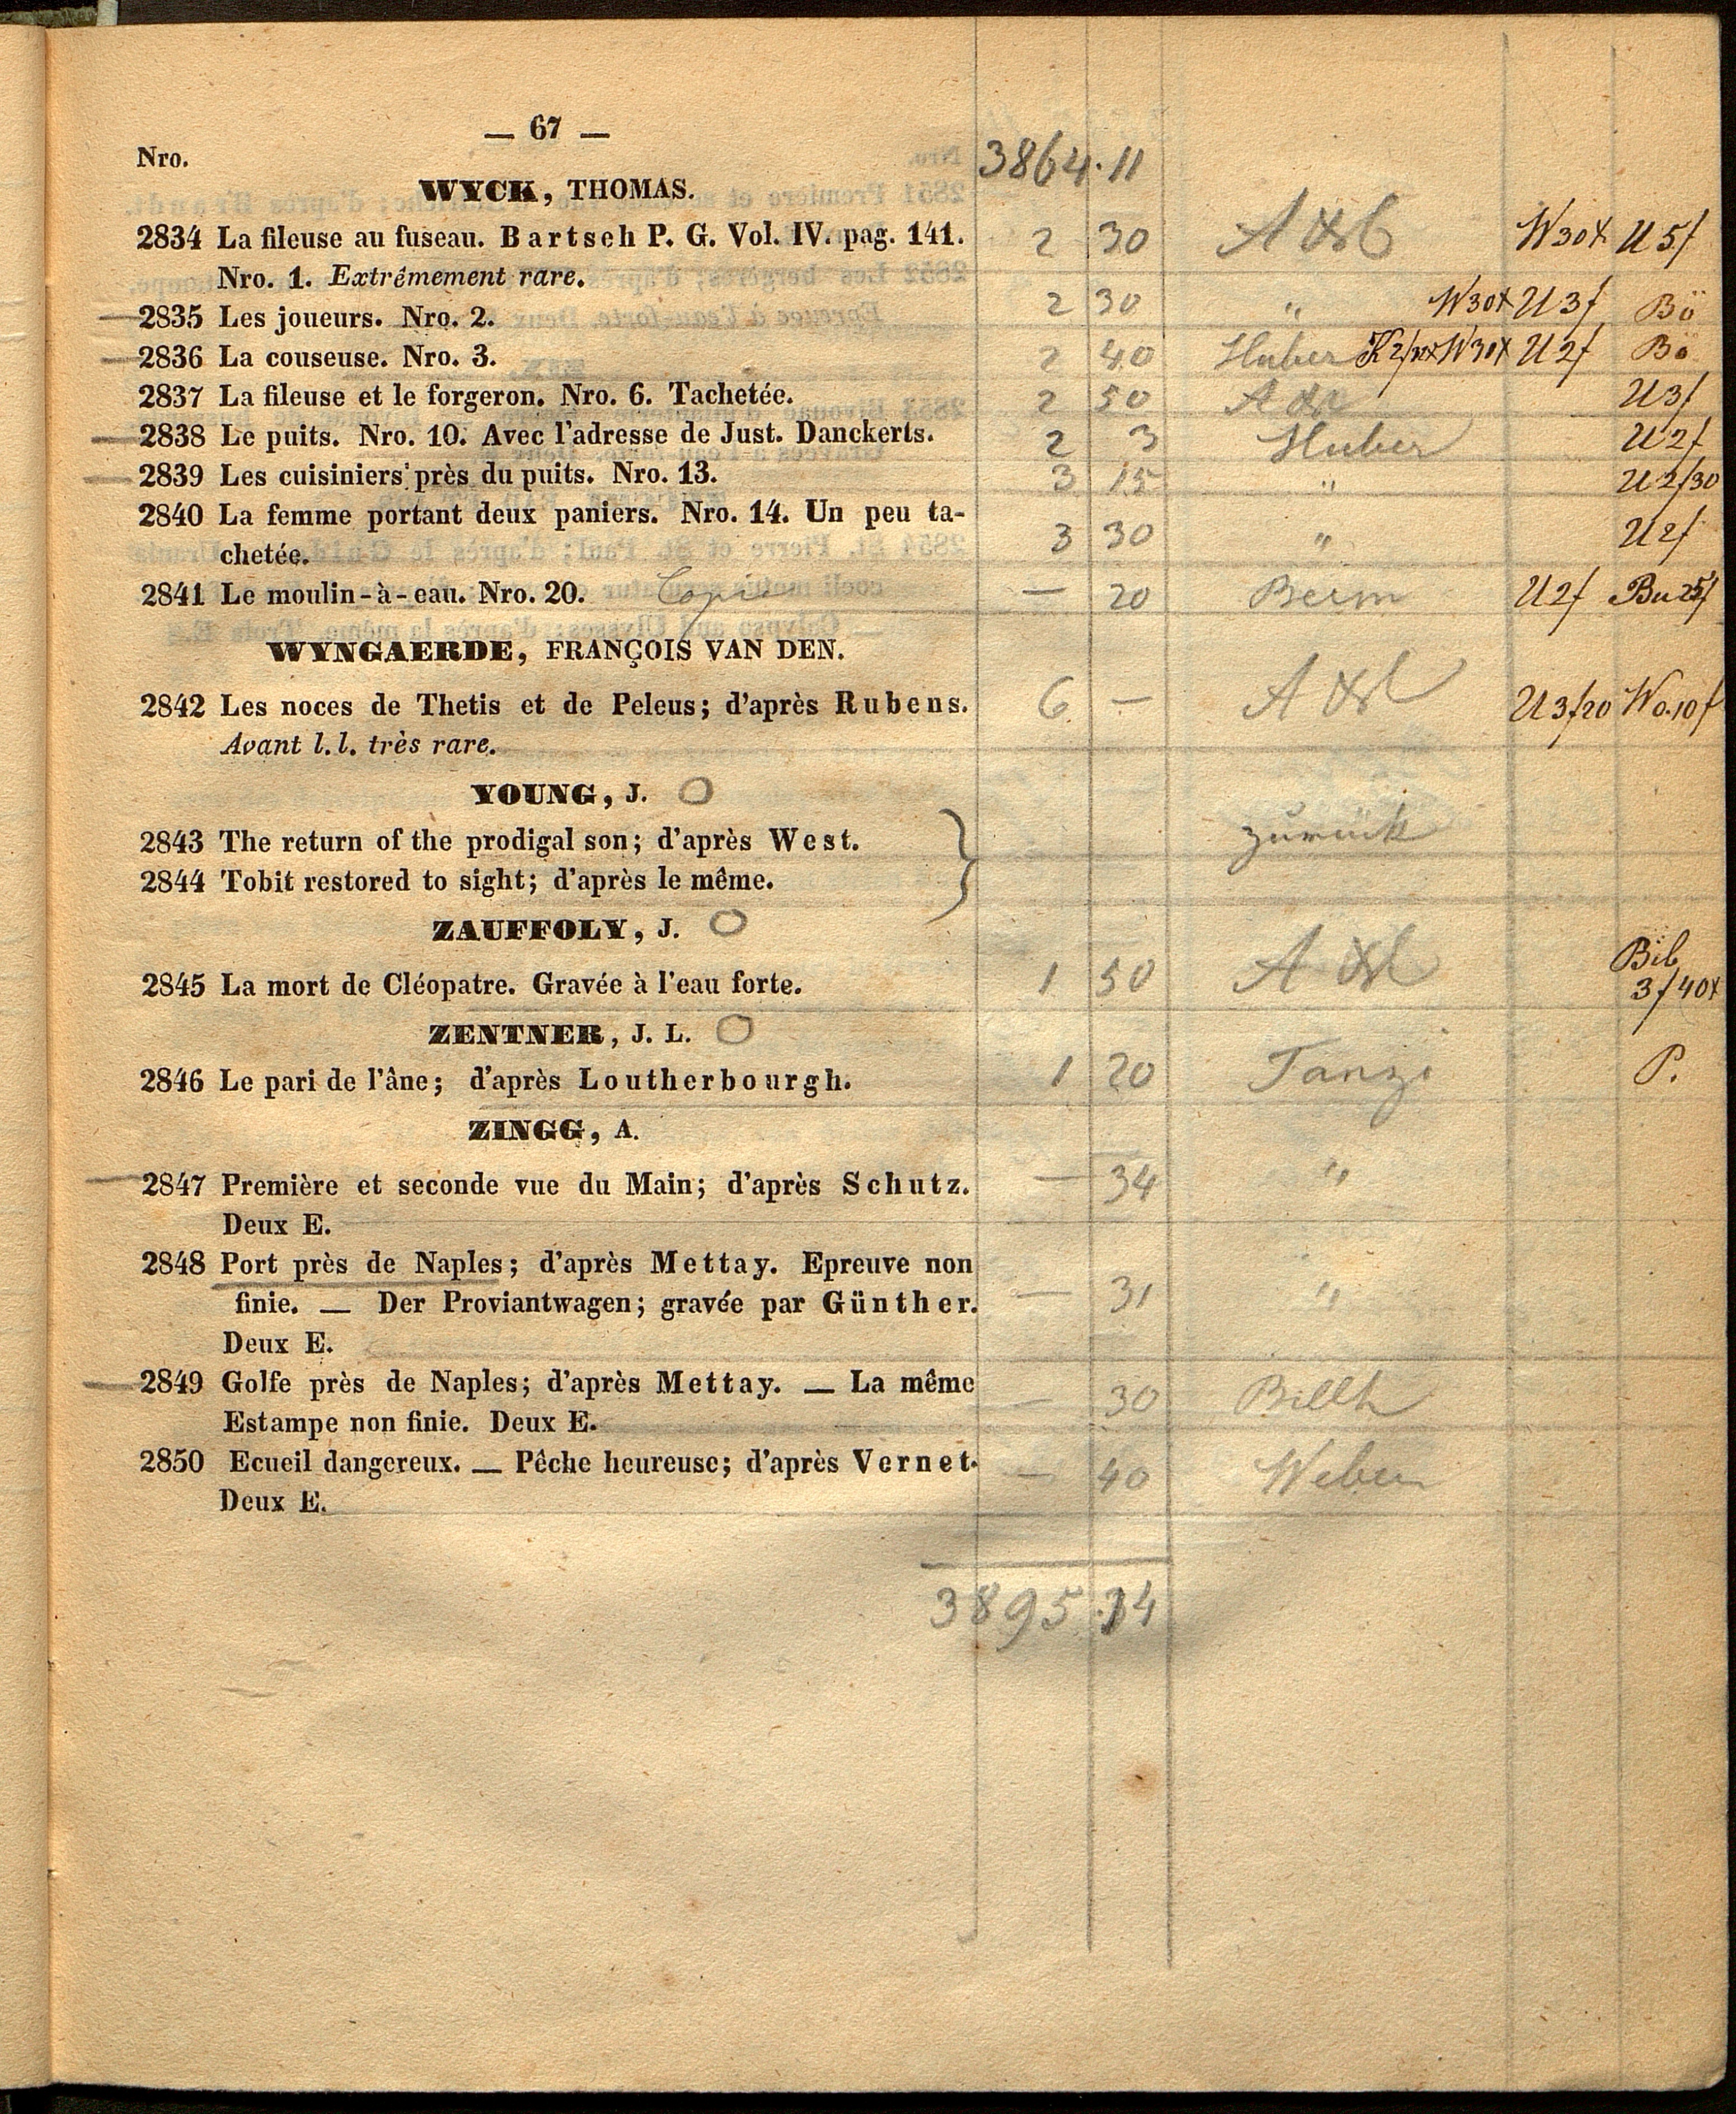 — 67 —
Nro.
3864.11
WYCK, THOMAS.
2834 La fileuse au fuseau. Bartsch P. G. Vol. IV. pag. 141. 2 30 W30x U 5f
Nro. 1. Extrémement rare.
2835 Les joueurs. Nro. 2. 2 30 " W30x U3f Bö
2836 La couseuse. Nro. 3. 2 40 Huber W30x U2f Bö
2837 La fileuse et le forgeron. Nro. 6. Tachetée. 2 50 U3f
2838 Le puits. Nro. 10. Avec l'adresse de Just. Danckerts. 2 3 Huber U2f
2839 Les cuisiniers près du puits. Nro. 13. 3 15 " U2f30
2840 La femme portant deux paniers. Nro. 14. Un peu ta-
chetée. 3 30 " U2f
2841 Le moulin-à-eau. Nro. 20. Copie — 20 U2f
WYNGAERDE, FRANÇOIS VAN DEN.
2842 Les noces de Thetis et de Peleus; d'après Rubens. 6 — U3f20 Wo.10f
Avant l. l. très rare.
YOUNG, J.
2843 The return of the prodigal son; d'après West. zurück
2844 Tobit restored to sight; d'après le même.
ZAUFFOLY, J.
2845 La mort de Cléopatre. Gravée à l'eau forte. 1 50 Bib
3f40x
ZENTNER, J. L.
2846 Le pari de l'âne; d'après Loutherbourgh. 1 20 Tanzi P.
ZINGG, A.
2847 Première et seconde vue du Main; d'après Schutz. — 34 "
Deux E.
2848 Port près de Naples; d'après Mettay. Epreuve non
finie. — Der Proviantwagen; gravée par Günther. — 31 "
Deux E.
2849 Golfe près de Naples; d'après Mettay. — La même — 30
Estampe non finie. Deux E.
2850 Ecueil dangereux. — Pêche heureuse; d'après Vernet. — 40 Weber
Deux E.
3895.34